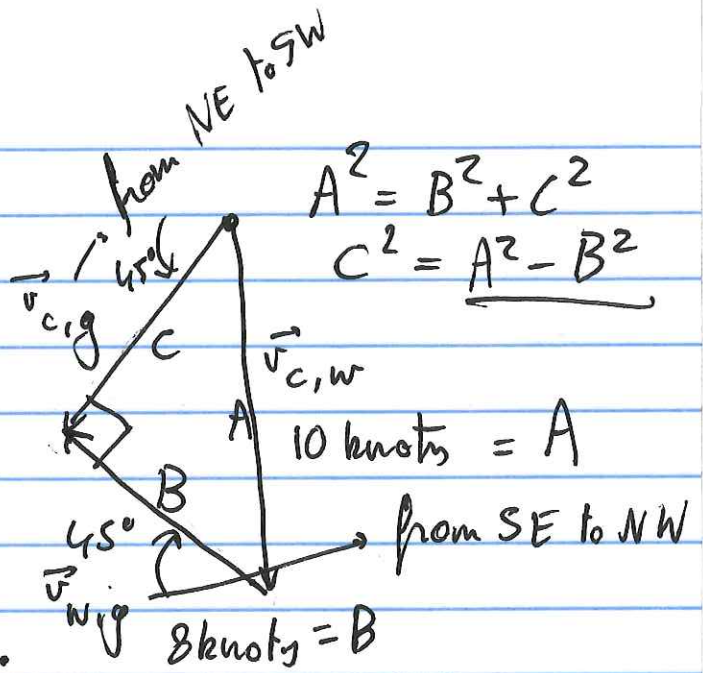 from NE to SW
A² = B² + C²
C² = A² - B²
45°
v⃗ c,g
C
v⃗ c,w
A
10 knots = A
B
45°
from SE to NW
v⃗ w,g
8 knots = B